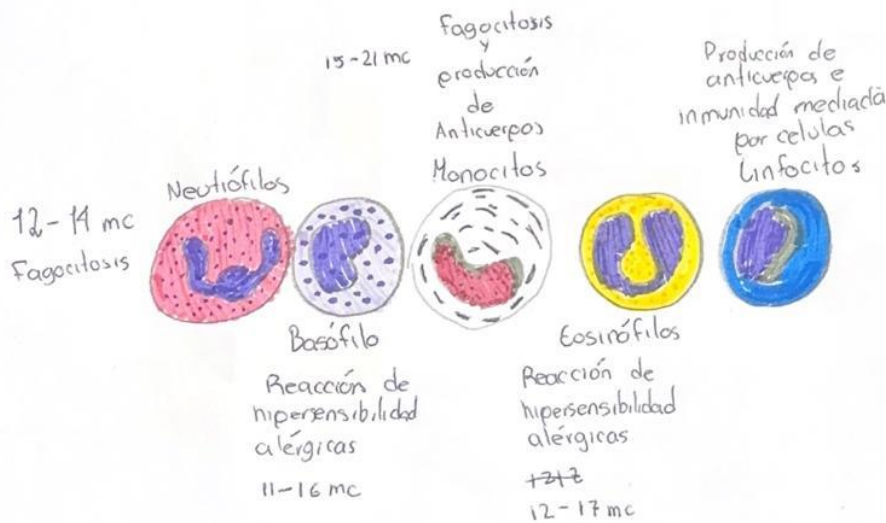 15-21 mc
Fagocitosis
y
producción
de
Anticuerpos
Monocitos
Producción de
anticuerpos e
inmunidad mediada
por celulas
Linfocitos
Neutrófilos
12-14 mc
Fagocitosis
Basófilo
Reacción de
hipersensibilidad
alérgicas
11-16 mc
Eosinófilos
Reacción de
hipersensibilidad
alérgicas
12-17 mc